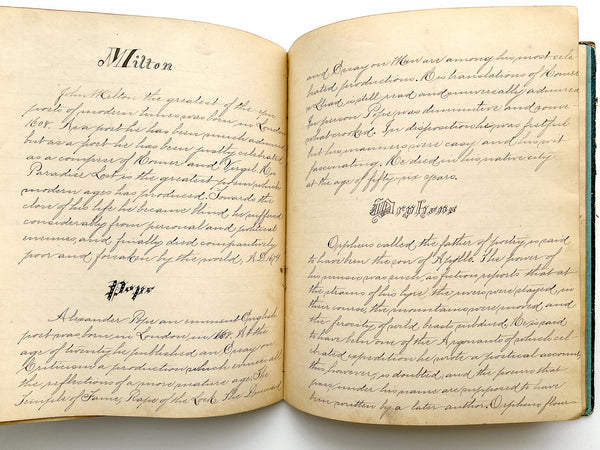 Milton
John Milton the greatest of the epic
poets of modern times was born in London
1608. As a poet he has been much admired
but as a poet he has been pretty celebrated
as a compeer of Homer and Virgil His
Paradise Lost is the greatest poem which
modern ages has produced. Towards the
close of his life he became blind he suffered
considerably from personal and political
enemies and finally died comparitively
poor and forsaken by the world, A.D. 1674
Pope
Alexander Pope an eminent English
poet was born in London in 1688. At the
age of twenty he published an Essay on
Criticism a production which evinces all
the reflections of a more mature age. The
Temple of Fame, Rape of the Lock, The Dunciad
and Essay on Man are among his most cele-
brated productions. His translations of Homer
Iliad is still read and universally admired
In person Pope was diminutive and some
what crooked. In disposition he was fretful
but his manners were easy and his wit
fascinating. He died in his native city
at the age of fifty-six years.
Orpheus
Orpheus called the father of poetry is said
to have been the son of Apollo. The power of
his music was such, as fiction reports that at
the strains of his lyre, the rivers were stayed in
their course, the mountains were moved and
the ferocity of wild beasts subdued He is said
to have been one of the Argonauts of which cel-
ebrated expedition he wrote a poetical account
this however, is doubted, and the poems that
pass under his name are supposed to have
been written by a later author. Orpheus flour-